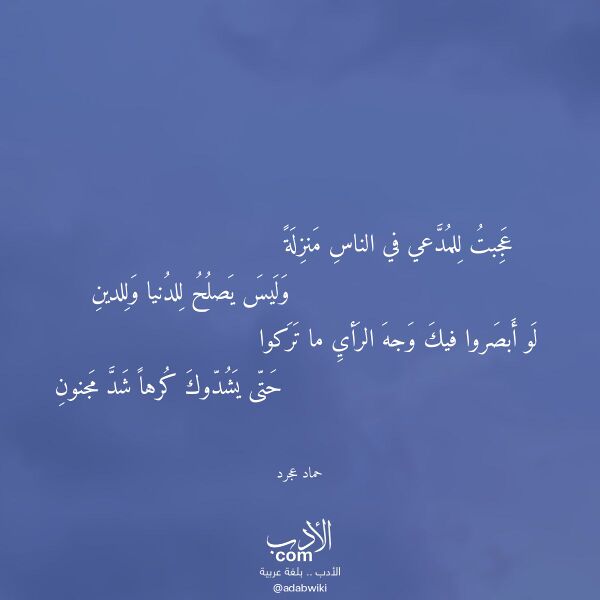 عَجِبتُ لِلمُدَّعي في الناسِ مَنزِلَةً
وَلَيسَ يَصلُحُ لِلدُنيا وَلِلدينِ
لَو أَبصَروا فيكَ وَجهَ الرَأيِ ما تَرَكوا
حَتّى يَشُدّوكَ كُرهاً شَدَّ مَجنونِ
حماد عجرد
الأدب
com
الأدب .. بلغة عربية
@adabwiki